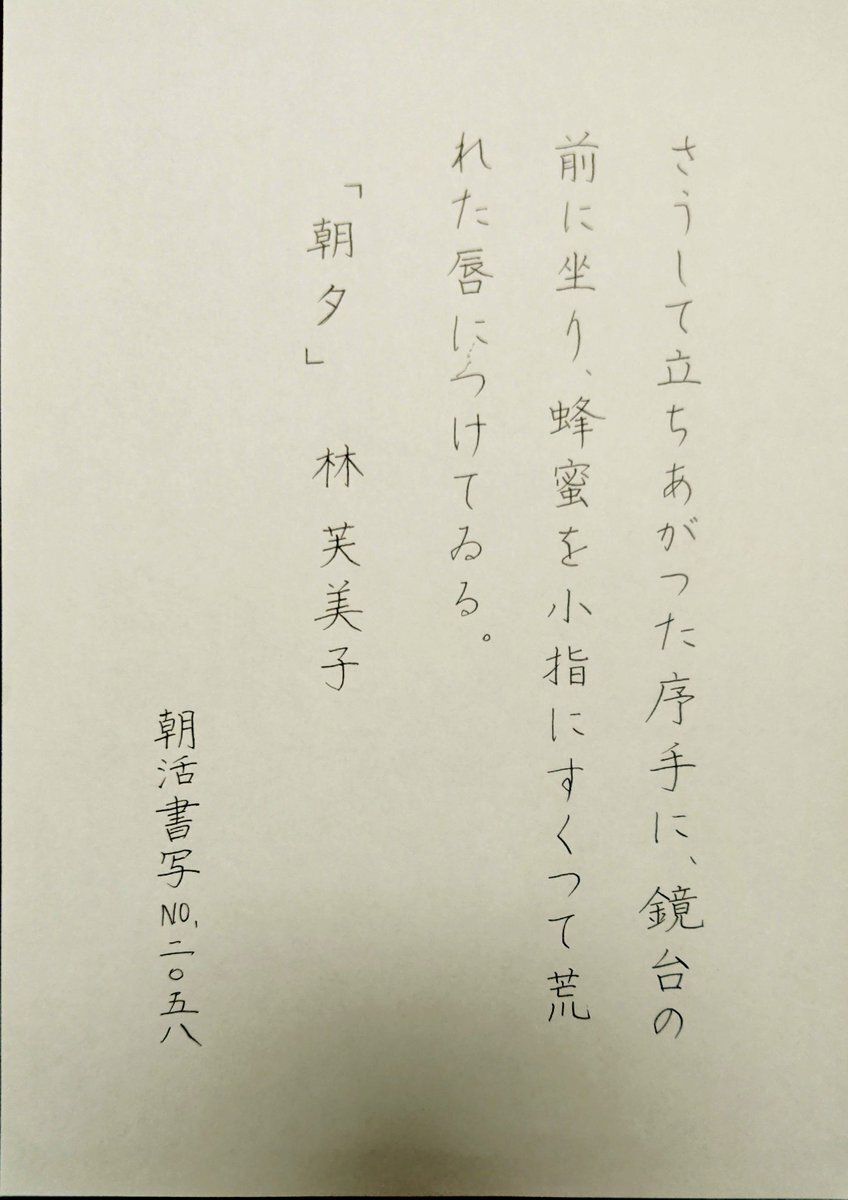 さうして立ちあがつた序手に、鏡台の
前に坐り、蜂蜜を小指にすくつて荒
れた唇につけてゐる。
「朝夕」 林芙美子
朝活書写NO.二〇五八